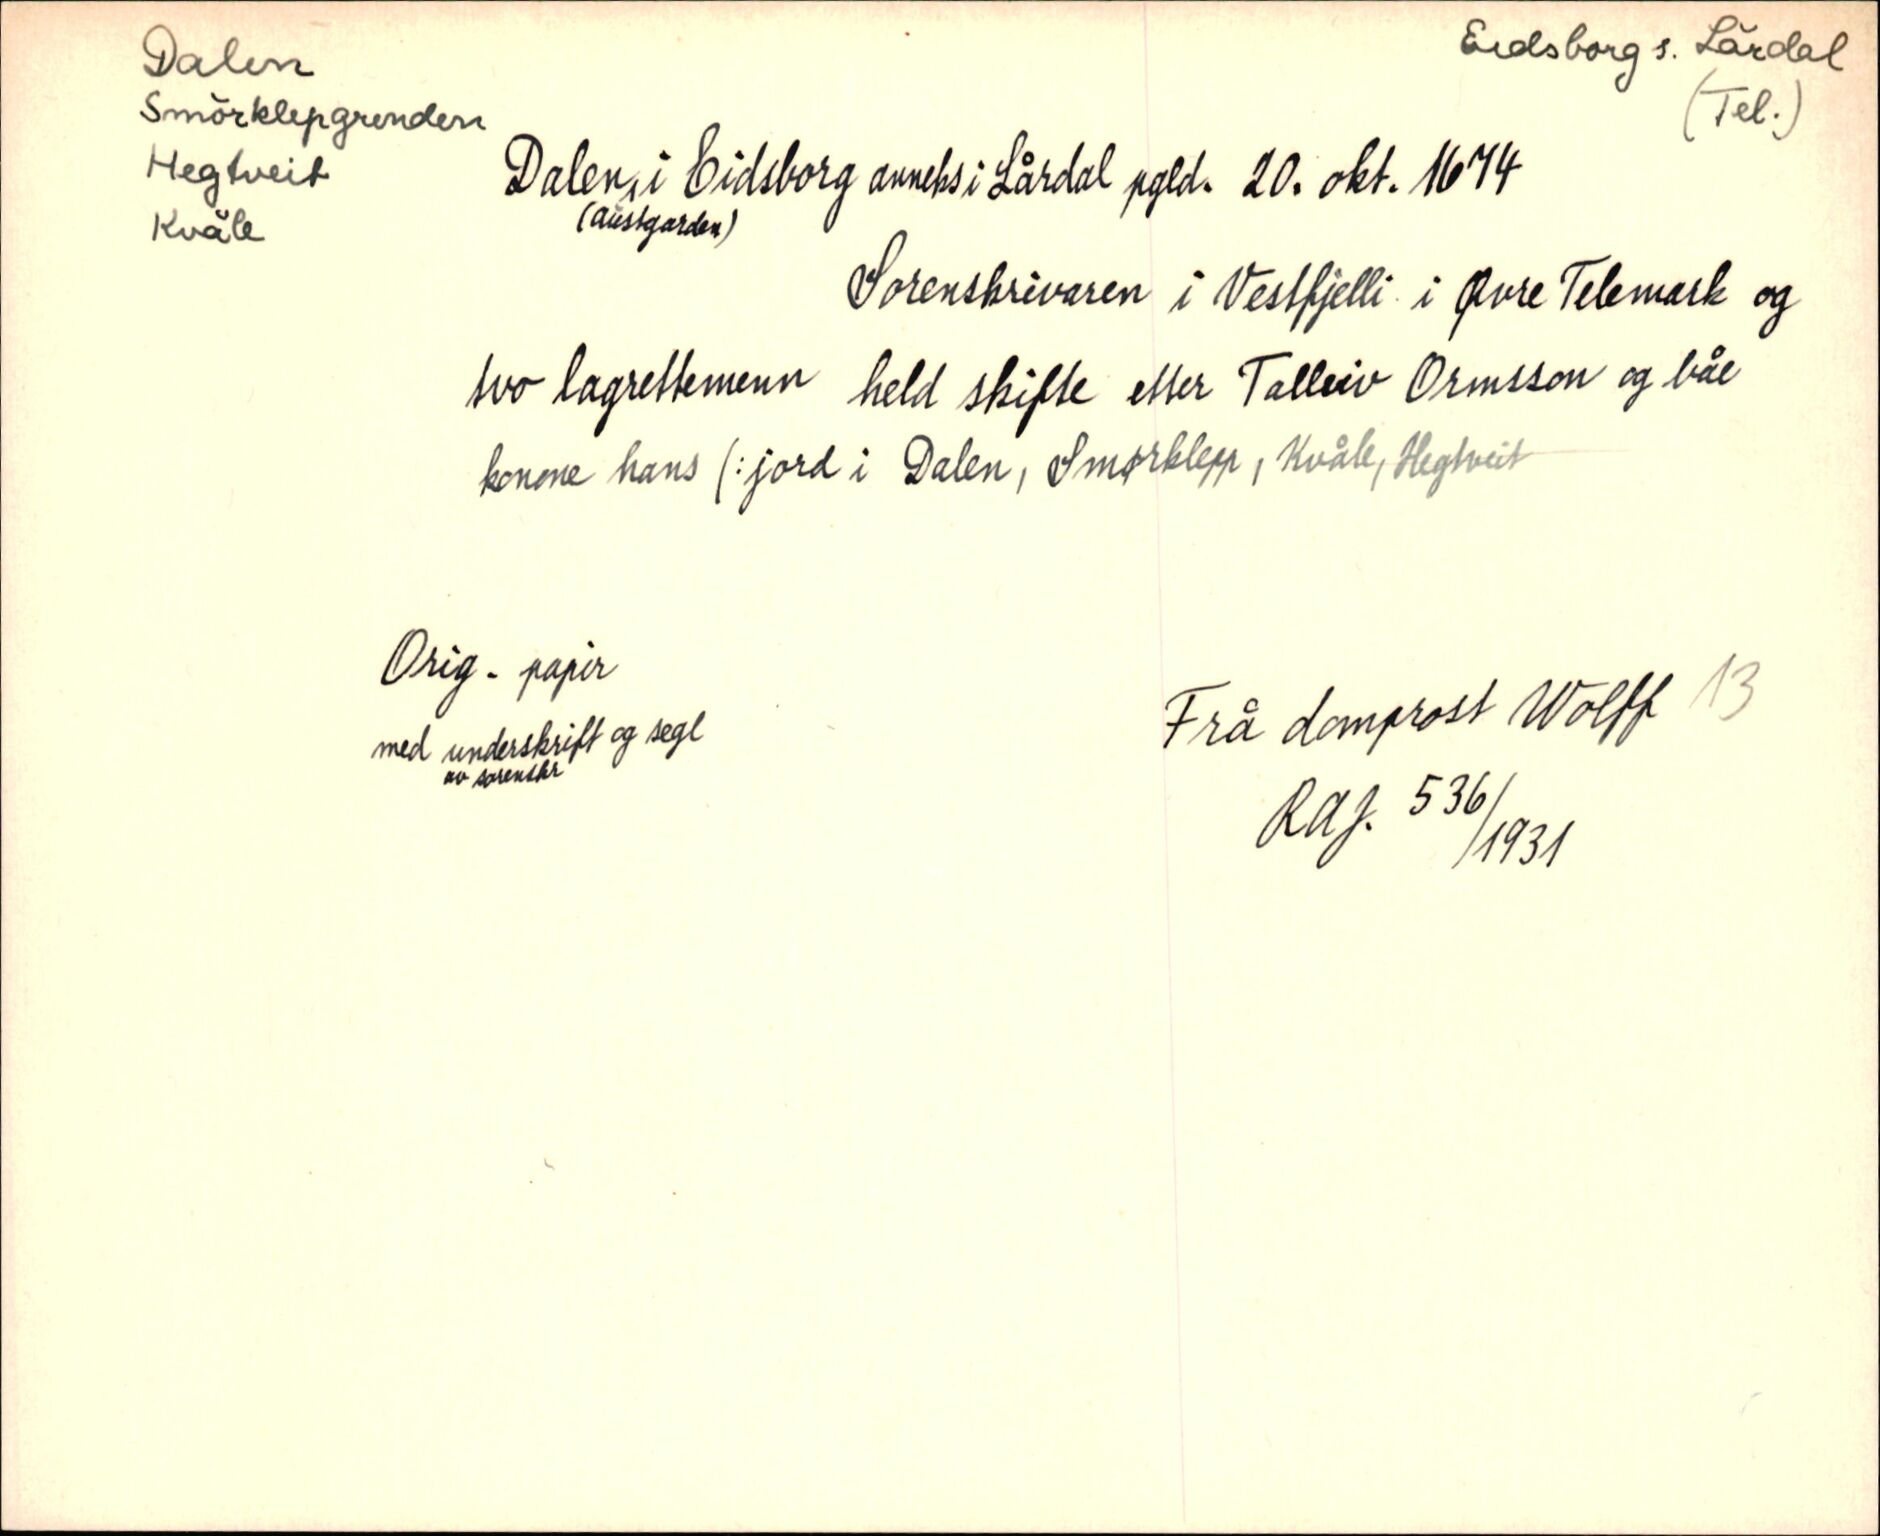 Dalen
Smörklepgrenden
Hegtveit
Kvåle
Eidsborg s. Lårdal
(Tel.)
Dalen, i Eidsborg anneks i Lårdal pgld. 20. okt. 1674
(austgarden)
Sorenskrivaren i Vestfjelli i Øvre Telemark og
tvo lagrettemenn held skifte etter Talleiv Ormsson og båe
konone hans (: jord i Dalen, Smørklepp, Kvåle, Hegtveit
Orig - papir
med underskrift og segl
av sorenskr
Frå domprost Wolff 13
RAJ. 536/1931